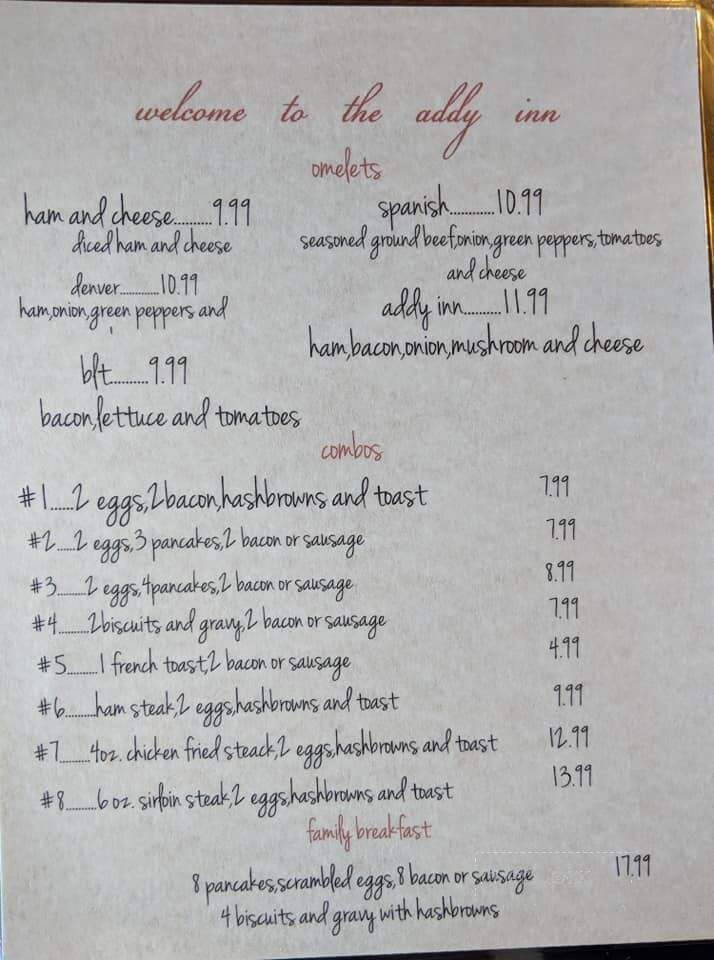 welcome to the addy inn
omelets
ham and cheese..........9.99
diced ham and cheese
denver............10.99
ham,onion,green peppers and
blt..........9.99
bacon,lettuce and tomatoes
spanish............10.99
seasoned ground beef,onion,green peppers,tomatoes
and cheese
addy inn..........11.99
ham,bacon,onion,mushroom and cheese
combos
#1......2 eggs,2bacon,hashbrowns and toast 7.99
#2.....2 eggs,3 pancakes,2 bacon or sausage 7.99
#3........2 eggs,4pancakes,2 bacon or sausage 8.99
#4........2biscuits and gravy,2 bacon or sausage 7.99
#5.........1 french toast,2 bacon or sausage 4.99
#6.........ham steak,2 eggs,hashbrowns and toast 9.99
#7.........4oz. chicken fried steack,2 eggs,hashbrowns and toast 12.99
#8.........6 oz. sirloin steak,2 eggs,hashbrowns and toast 13.99
family breakfast
8 pancakes,scrambled eggs,8 bacon or sausage 17.99
4 biscuits and gravy with hashbrowns